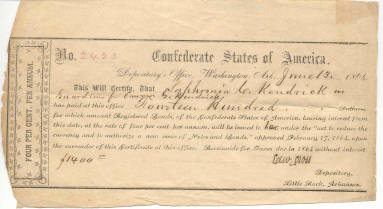 FOUR PER CENT. PER ANNUM.
No. 2423 Confederate States of America.
Depository's Office, Washington, Ark. June 13, 1864.
This Will Certify, That Sophronia C. Kendrick
Guardian C. Kendrick
has paid at this office Fourteen Hundred Dollars
for which amount Registered Bonds, of the Confederate States of America, bearing interest from
this date, at the rate of four per cent. per annum, will be issued to her under the "act to reduce the
currency and to authorize a new issue of Notes and Bonds," approved February 17, 1864, upon
the surrender of this Certificate at this office. Receivable for Taxes due in 1864 without interest
$1400
Depositary,
Little Rock, Arkansas.